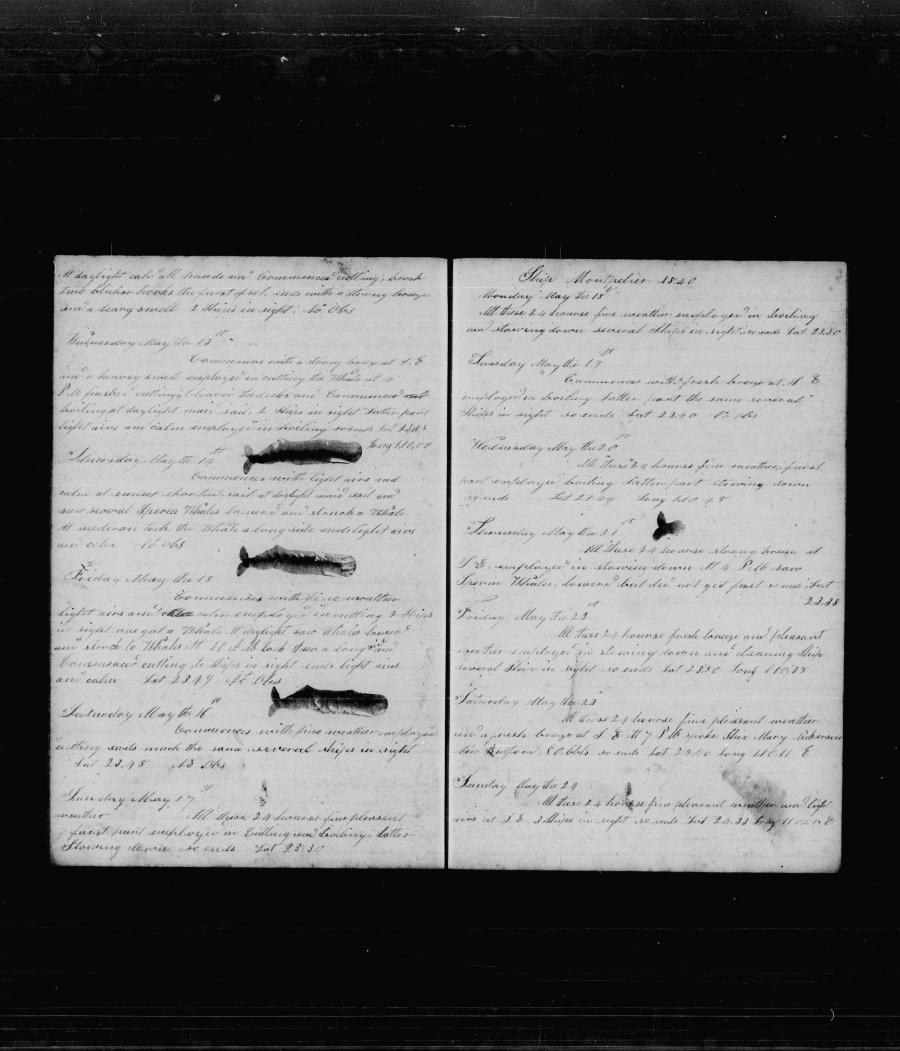 At daylight cald all hands and Commenced cutting, broak
two blubor hooks the furst of set, ends with a strong breeze
and a heavy swell 2 Ships in sight. No Obs
Wednesday May the 13th
Commences with a strong breeze at S. E
and a heavey swell employed in cutting the Whale at 4
P.M finished cutting, cleaverd the decks and Commenced
boiling at daylight maid sail. 2 Ships in sight Latter part
light airs and calm employed in boiling so ends Lat 23.
Long 110,00
Thursday May the 14th
Commences with light airs and
calm at sunset shortned sail at daylight maid sail and
saw several Sperm Whales lowered and struck a Whale
At meridian took the Whale a long side ends light airs
and calm No Obs
Friday May the 15
Commences with fine weather
light airs and calm employed in cutting 2 Ships
in sight one got a Whale. At daylight saw Whales lowerd
and struck to Whales At 10 A.M took them a long side and
Commenced cutting Ships in sight ends light airs
and calm Lat 23 49 No Obs
Saturday May the 16th
Commences with fine weather employed
cutting ends much the same, several ships in sight
Lat 23,48 No Obs
Sunday May 17th
weather All these 24 hourse fine pleasent
furst part employed in Cutting and boiling, latter
Stowing down so ends Lat 23,30
Ship Montpelier 1840
Monday May the 18th
All these 24 hourse fine weather employed in boiling
and stowing down several Ships in sight so ends Lat 23.30
Tuesday May the 19th
Commences with fresh breeze at S E
employed in boiling Latter part the same several
Ships in sight so ends Lat 23.40 No Obs
Wednesday May the 20th
All these 24 hourse fine weather, furst
part employed boiling Latter part stowing down
so ends Lat 23.44 Long 110 45
Thursday May the 21st
All these 24 hourse strong breeze at
S E employed in stowing down At 4 P.M saw
Sperm Whales, lowered but did not get fast so ends Lat
23.38
Friday May the 22nd
All these 24 hourse fresh breeze and pleasant
weather employed in stowing down and cleaning Ship
several Ships in sight so ends Lat 23.50 Long 110.35
Saturday May the 23
All these 24 hourse fine pleasant weather
and a fresh breeze at S E At 7 P.M spoke Ship Mary
New Bedford 80,bbls so ends Lat 23.40 Long 110.11 E
Sunday May the 24
All these 24 hourse fine pleasant weather and light
airs at S E 3 Ships in sight so ends Lat 24.33 Long